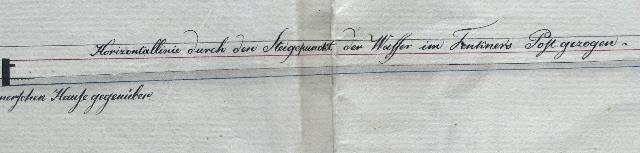 Horizontallinie durch den Steigepunckt der Wasser im Fentiners Post gezogen.
nerschen Hause gegenüber